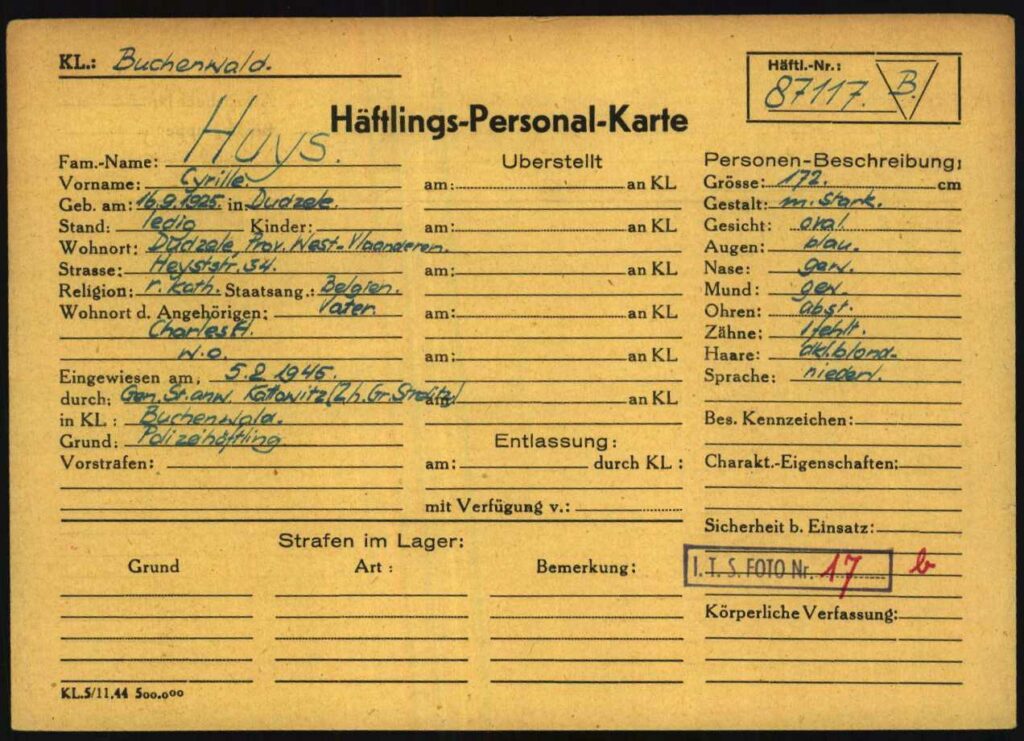 KL.: Buchenwald.
Häftl.-Nr.:
87117. B.
Häftlings-Personal-Karte
Fam.-Name: Huys.
Vorname: Cyrille.
Geb. am: 16.9.1925. in: Dudzele.
Stand: ledig Kinder:
Wohnort: Dudzele, Prov. West-Vlaanderen.
Strasse: Heyststr. 34.
Religion: r. kath. Staatsang.: Belgien.
Wohnort d. Angehörigen: Vater.
Charles H.
w.o.
Eingewiesen am: 5.2.1945.
durch: Gen. St. anw. Kattowitz (Zh. Gr. Strelitz)
in KL: Buchenwald.
Grund: Polizeihäftling
Vorstrafen:
Uberstellt
am: an KL
am: an KL
am: an KL
am: an KL
am: an KL
am: an KL
Entlassung:
am: durch KL:
mit Verfügung v.:
Personen-Beschreibung:
Grösse: 172. cm
Gestalt: m. stark.
Gesicht: oval.
Augen: blau.
Nase: gew.
Mund: gew.
Ohren: abst.
Zähne: 1 fehlt.
Haare: dkl.blond.
Sprache: niederl.
Bes. Kennzeichen:
Charakt.-Eigenschaften:
Sicherheit b. Einsatz:
I. T. S. FOTO Nr. 17 b
Körperliche Verfassung:
Strafen im Lager:
Grund Art: Bemerkung:
KL.5/11.44 500.000